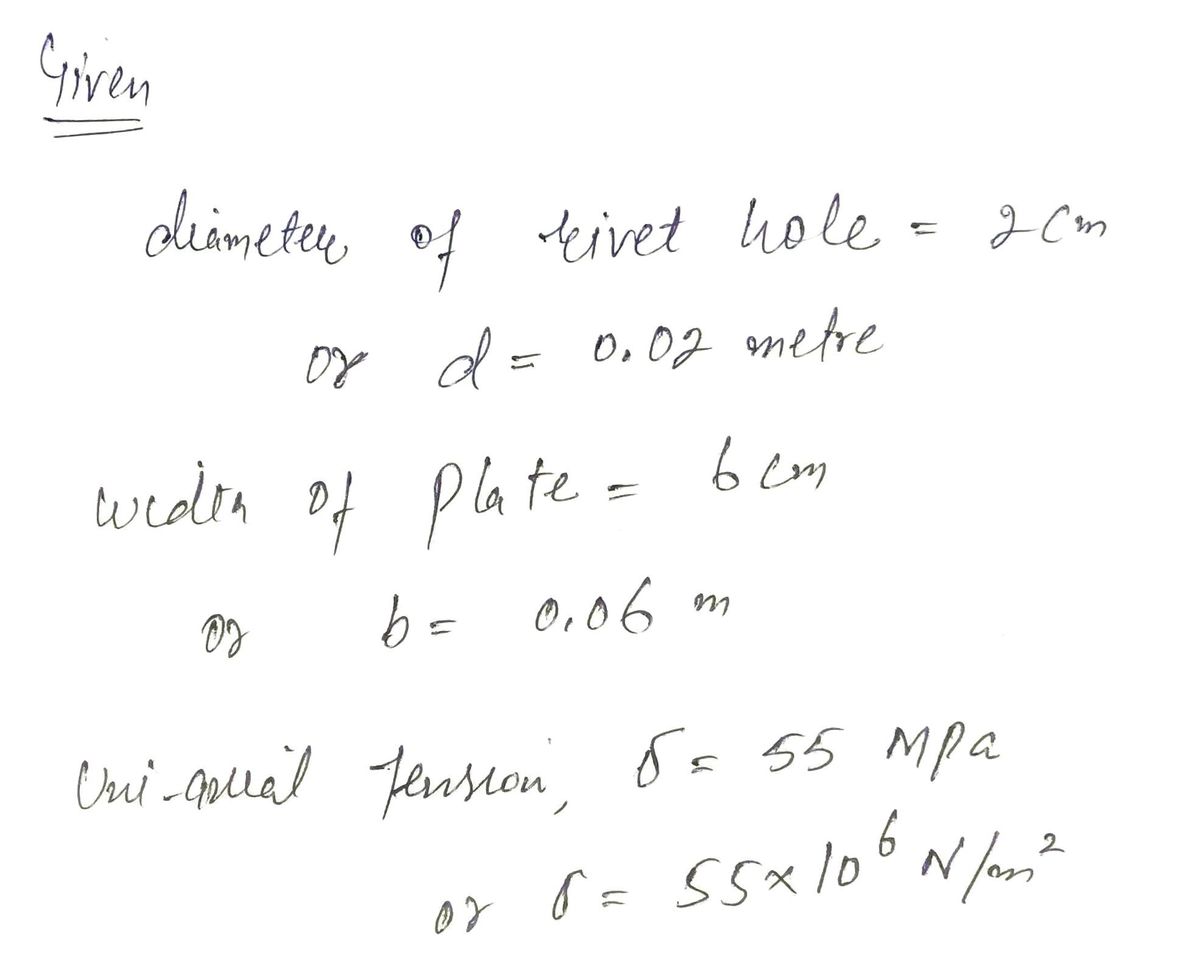 Given
diameter of rivet hole = 2 cm
or d = 0.02 metre
width of Plate = 6 cm
or b = 0.06 m
Uni-axial Tension, σ = 55 MPa
or σ = 55 × 10⁶ N/m²